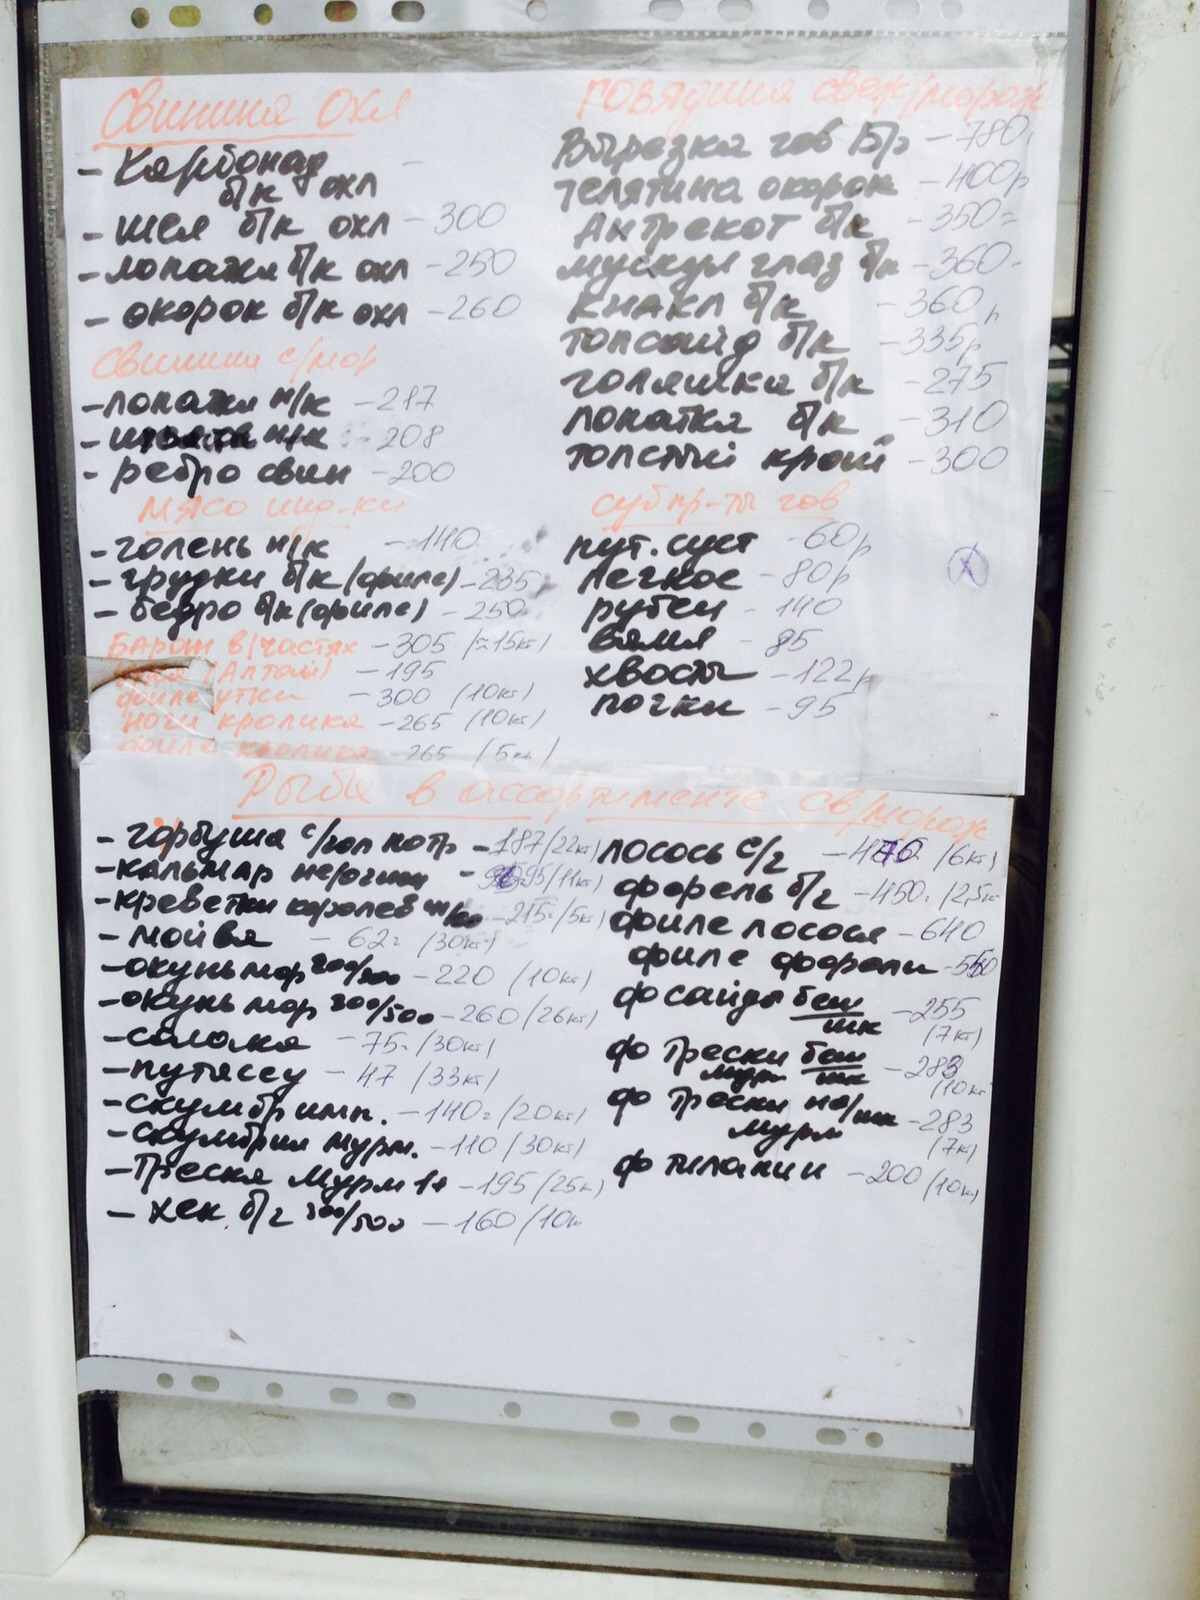 Свинина охл
- Карбонад -
б/к охл
- шея б/к охл - 300
- лопатка б/к охл - 250
- окорок б/к охл - 260
Свинина с/мор
- лопатка н/к - 217
н/к - 208
- ребро свин - 200
мясо инд-ки
- голень н/к - 140
- грудки б/к (филе) - 235
- бедро б/к (филе) - 250
Баран в/частях - 305 (≈15кг)
(Алтай) - 195
филе утки - 300 (10кг)
ноги кролика - 265 (10кг)
филе кролика - 265 (5кг)
говядина свеж/морож
Вырезка гов Б/р - 780
телятина окорок - 400р
Антрекот б/к - 350=
мускул глаз б/к - 360-
кнакл б/к - 360р
топсайд б/к - 335р
голяшка б/к - 275
лопатка б/к - 310
толстый край - 300
субпр-ты гов
пут. суст - 60р
легкое - 80р
рубец - 140
вымя - 85
хвосты - 122р
почки - 95
Рыба в ассортименте св/морож
- горбуша с/гол потр - 187 /22кг)
- кальмар не/очищ - 95 /11кг)
- креветки королев - 215= /5кг)
- мойва - 62= /30кг)
- окунь мор 200/300 - 220 /10кг)
- окунь мор 300/500 - 260 /26кг)
- салака - 75= /30кг)
- путассу - 47 /33кг)
- скумбр имп. - 140= /20кг)
- скумбрия мурм. - 110 /30кг)
- Треска Мурм 1+ - 195 /25к)
- хек б/г 300/500 - 160 /10к
лосось с/г - 470 /6кг)
форель б/г - 450= /25кг
филе лосося - 640
филе форели - 550
ф сайды без шк - 255 (7кг)
ф трески без шк мурм - 283 (10кг
ф трески на/шк мурм - 283 (7кг)
ф тилапии - 200 /10к)